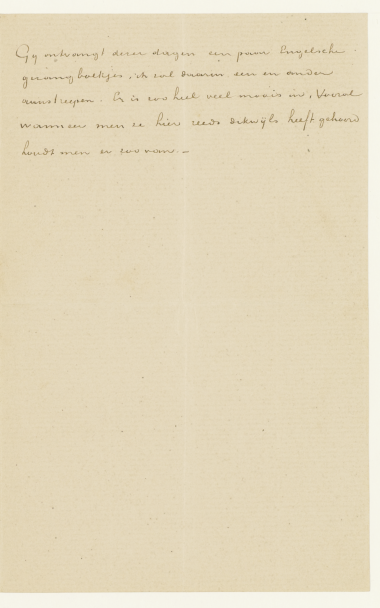 Gy ontvangt dezer dagen een paar Engelsche
gezangboekjes, ik zal daarin een en ander
aanstreepen. Er is zoo heel veel moois in, Vooral
wanneer men ze hier reeds dikwijls heeft gehoord
houdt men er zoo van. –